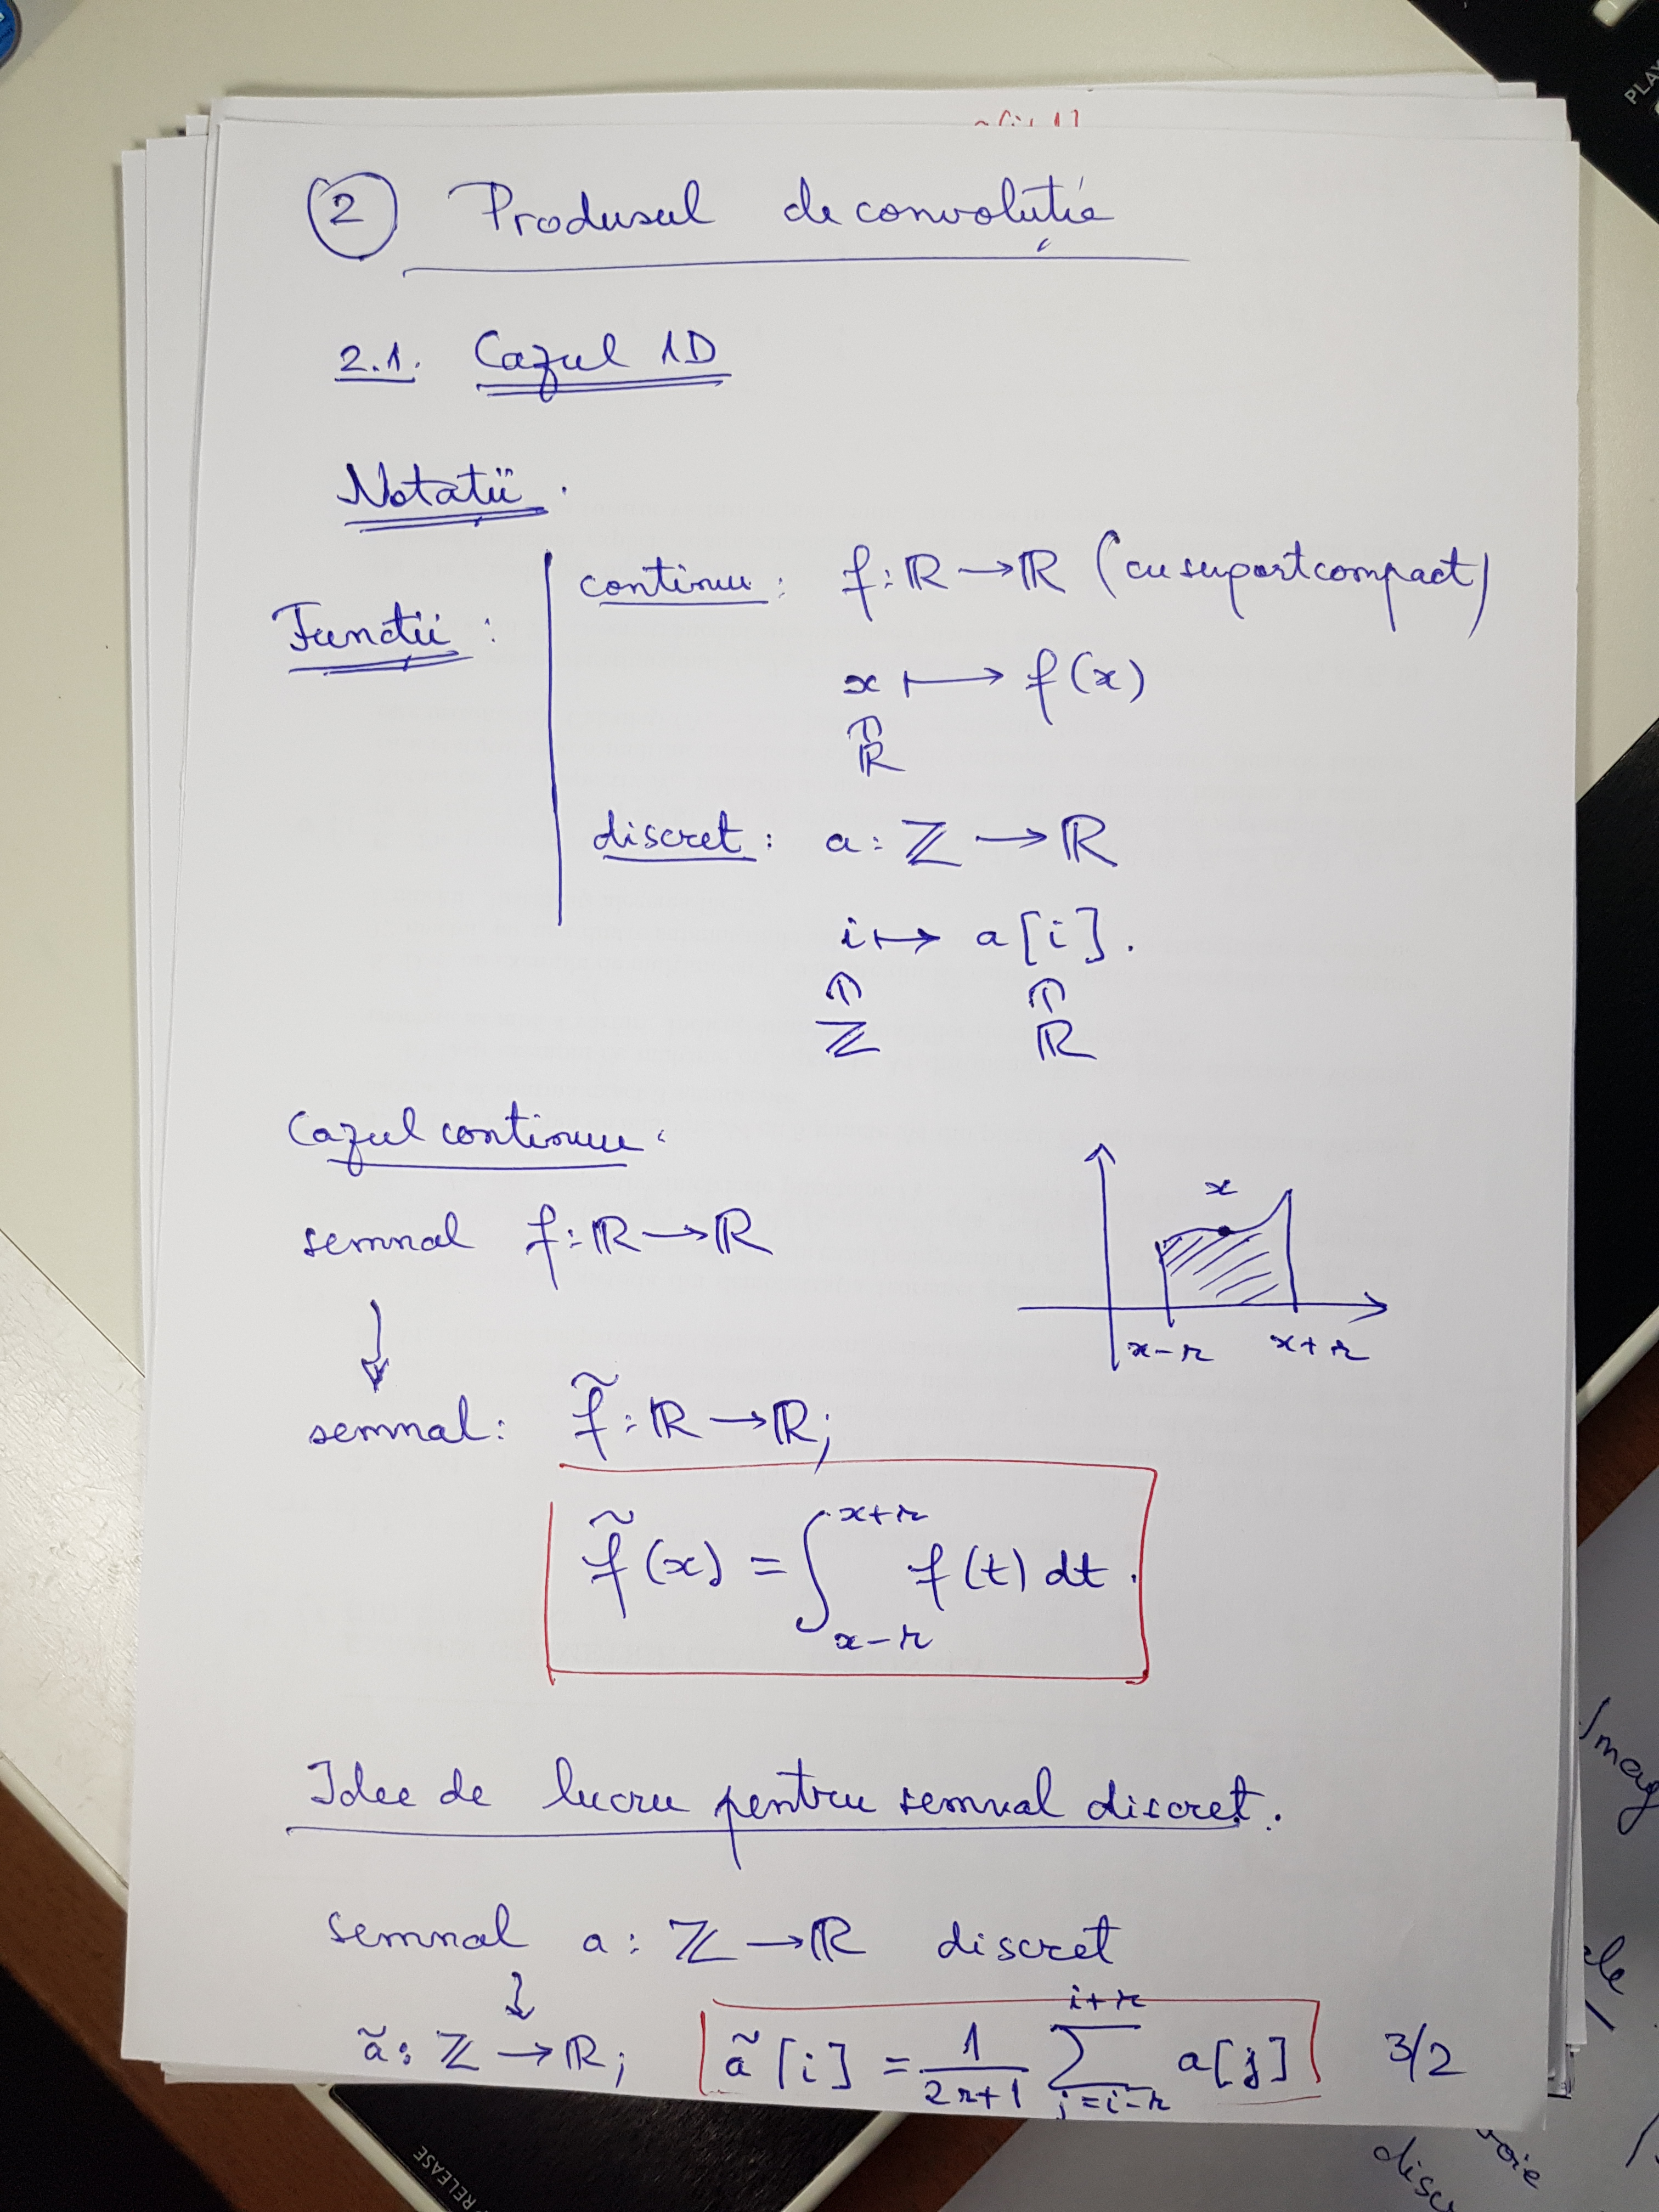 ② Produsul de convoluție
2.1. Cazul 1D
Notații.
Funcții: continuu: f: ℝ → ℝ (cu suport compact)
x ⟼ f(x)
⋒
ℝ
discret: a: ℤ → ℝ
i ↦ a[i].
⋒ ⋒
ℤ ℝ
Cazul continuu:
semnal f: ℝ → ℝ
↓
x
x-r x+r
semnal: f̃: ℝ → ℝ;
f̃(x) = ∫_{x-r}^{x+r} f(t) dt.
Idee de lucru pentru semnal discret.
semnal a: ℤ → ℝ discret
↓
ã: ℤ → ℝ; ã[i] = 1/(2r+1) ∑_{j=i-r}^{i+r} a[j] 3/2
PLAY
RELEASE
Imag
ale
voie
disc